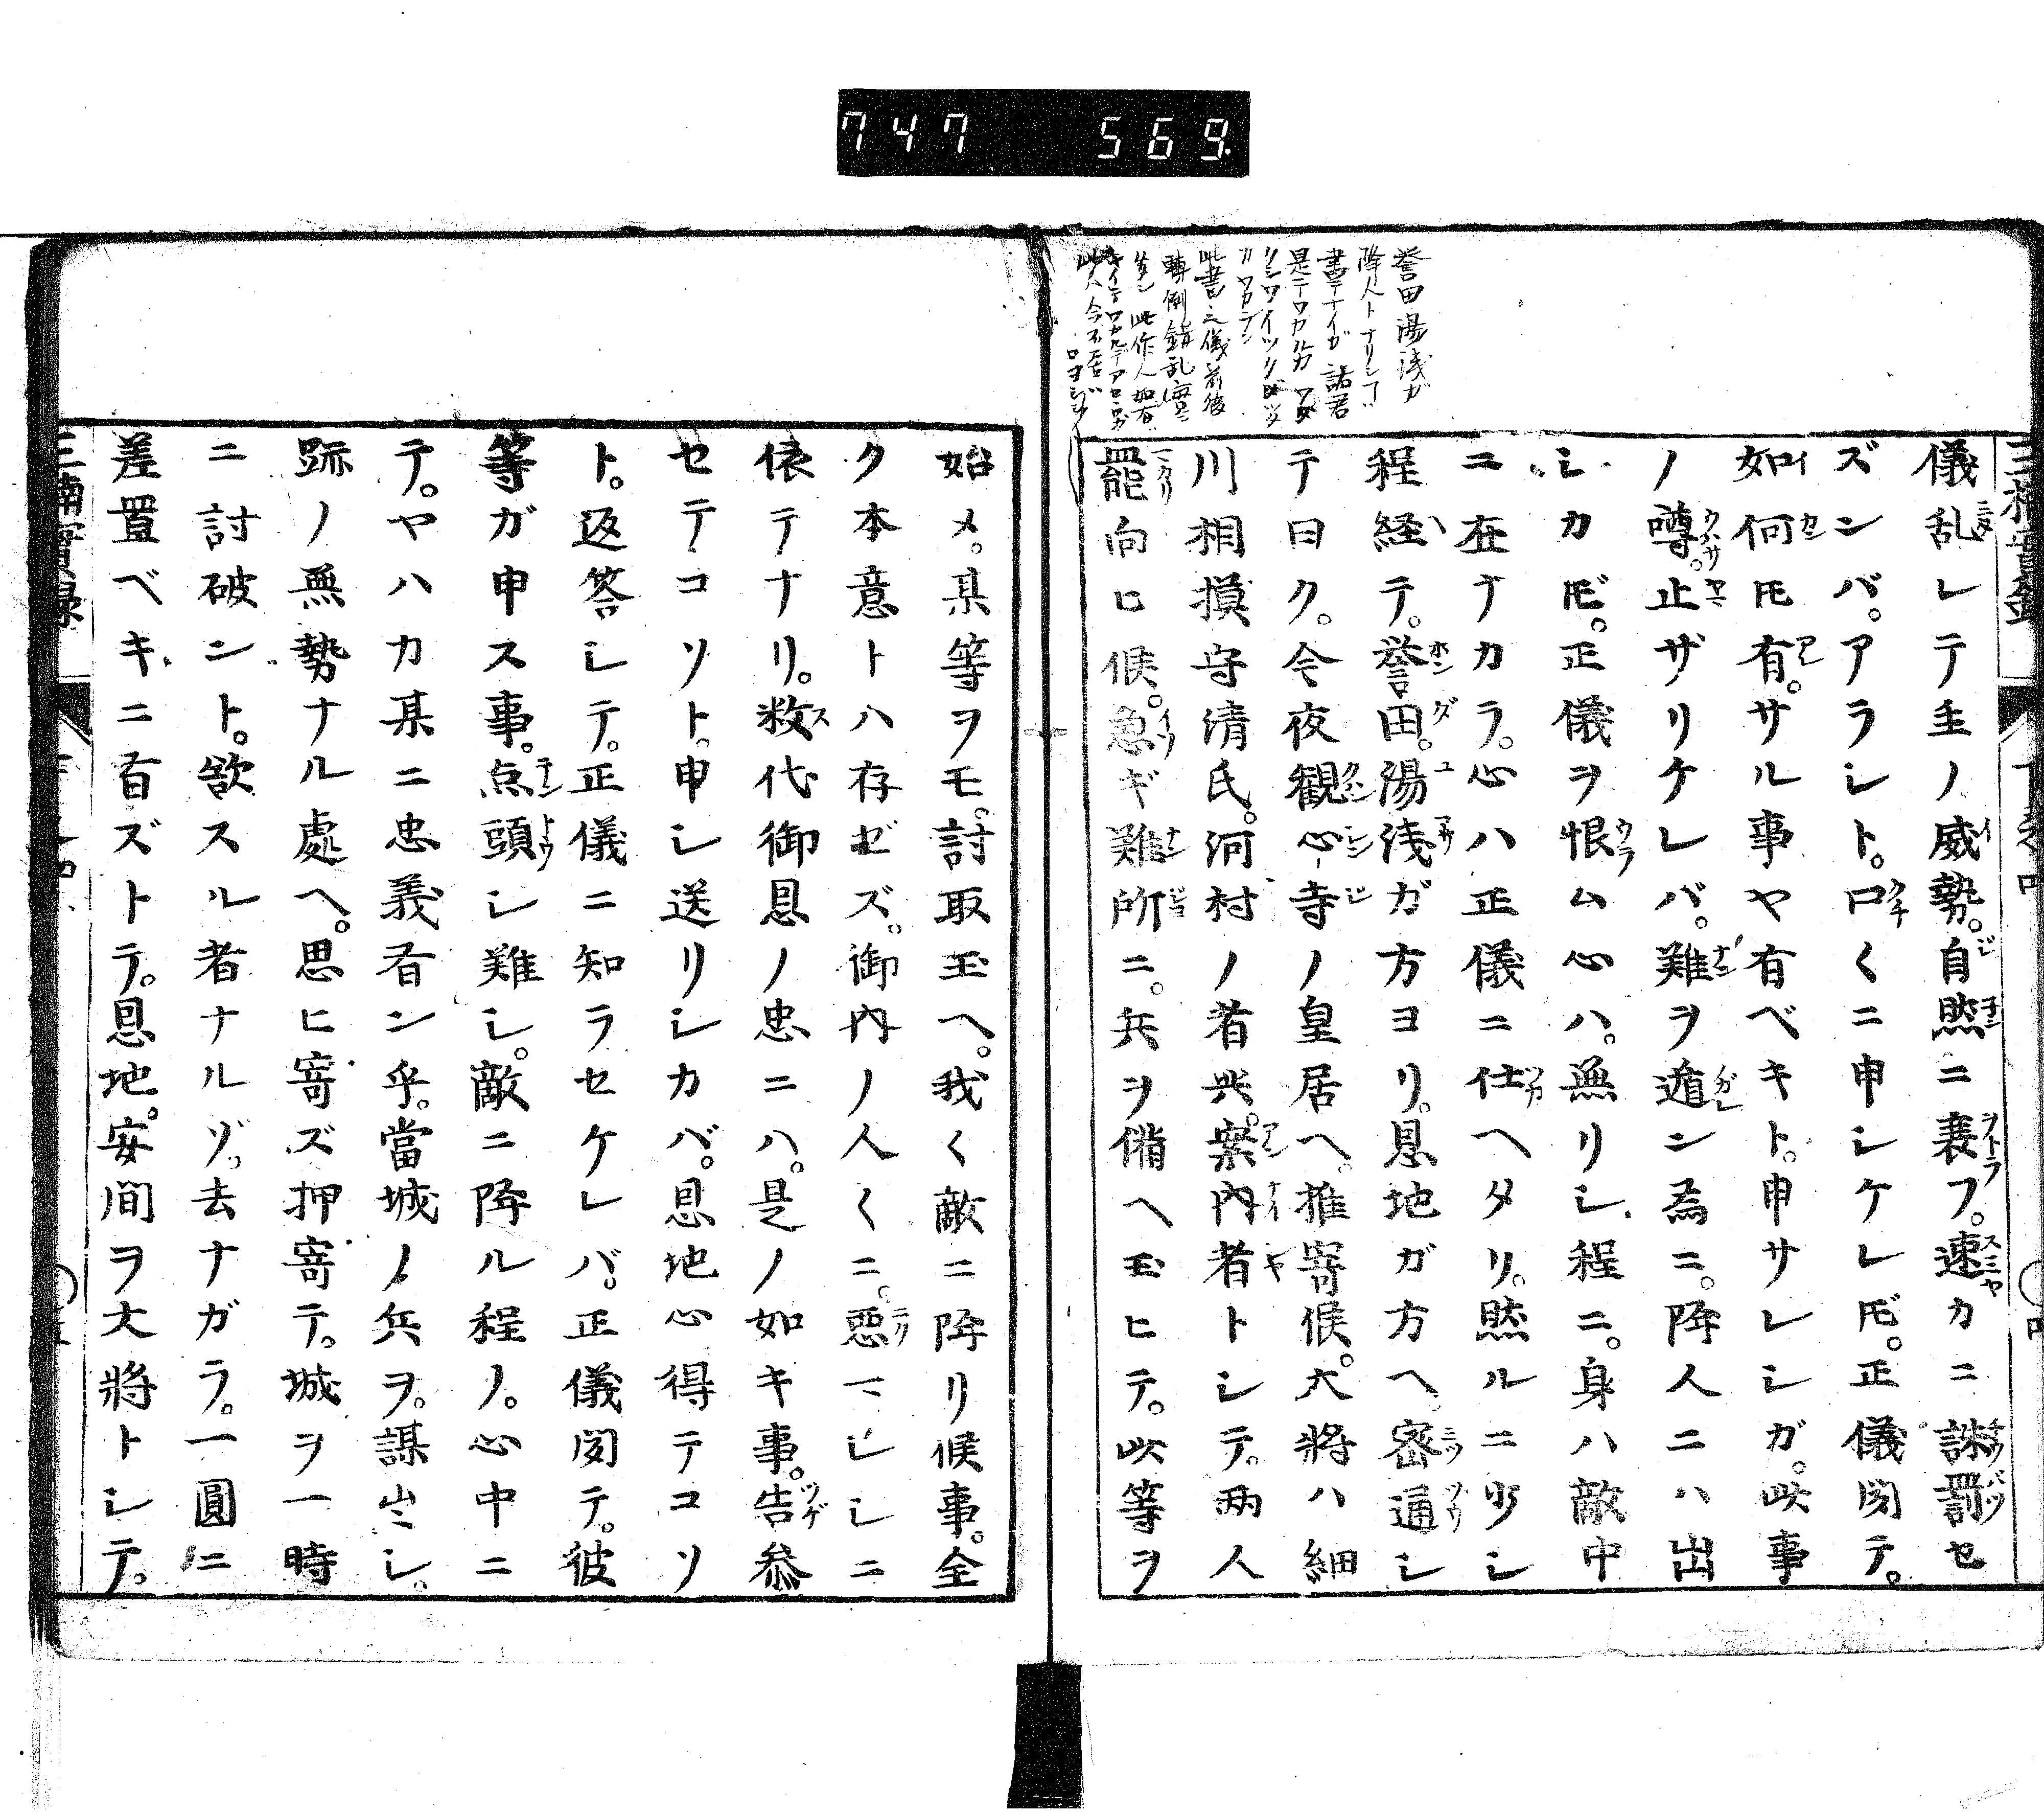 747 569
誉田湯浅ガ
降人トナリシ
書テナイガ諸君
是テワカルカ
カワカラン
此書之儀前後
轉倒錯乱
儀乱レテ主ノ威勢。自然ニ衰フ。速カニ誅罰セ
ズンバ。アラシト。口〱ニ申シケレ𪜈。正儀聞テ。
如何𪜈有。サル事ヤ有ベキト。申サレシガ。此事
ノ噂。止ザリケレバ。難ヲ遁ン為ニ。降人ニハ出
シカ𪜈。正儀ヲ恨ム心ハ。無リシ程ニ。身ハ敵中
ニ在ナカラ。心ハ正儀ニ仕ヘタリ。然ルニ少シ
程経テ。誉田。湯浅ガ方ヨリ。恩地ガ方ヘ。密通シ
テ曰ク。今夜観心寺ノ皇居ヘ。推寄候。大將ハ細
川相摸守清氏。河村ノ者共。案内者トシテ。両人
罷向ヒ候。急ギ難所ニ。兵ヲ備ヘ玉ヒテ。此等ヲ
始メ。某等ヲモ。討取玉ヘ。我〱敵ニ降リ候事。全
ク本意トハ存ゼズ。御内ノ人〱ニ。悪マレシニ
依テナリ。数代御恩ノ忠ニハ。是ノ如キ事。告参
セテコソト。申シ送リシカバ。恩地心得テコソ
ト。返答シテ。正儀ニ知ラセケレバ。正儀聞テ。彼
等ガ申ス事。点頭シ難シ。敵ニ降ル程ノ。心中ニ
テ。ヤハカ某ニ忠義有ン乎。當城ノ兵ヲ。謀出シ。
跡ノ無勢ナル處ヘ。思ヒ寄ズ押寄テ。城ヲ一時
ニ討破ント。欲スル者ナルゾ。去ナガラ。一圓ニ
差置ベキニ有ズトテ。恩地。安間ヲ大將トシテ。
三楠實録